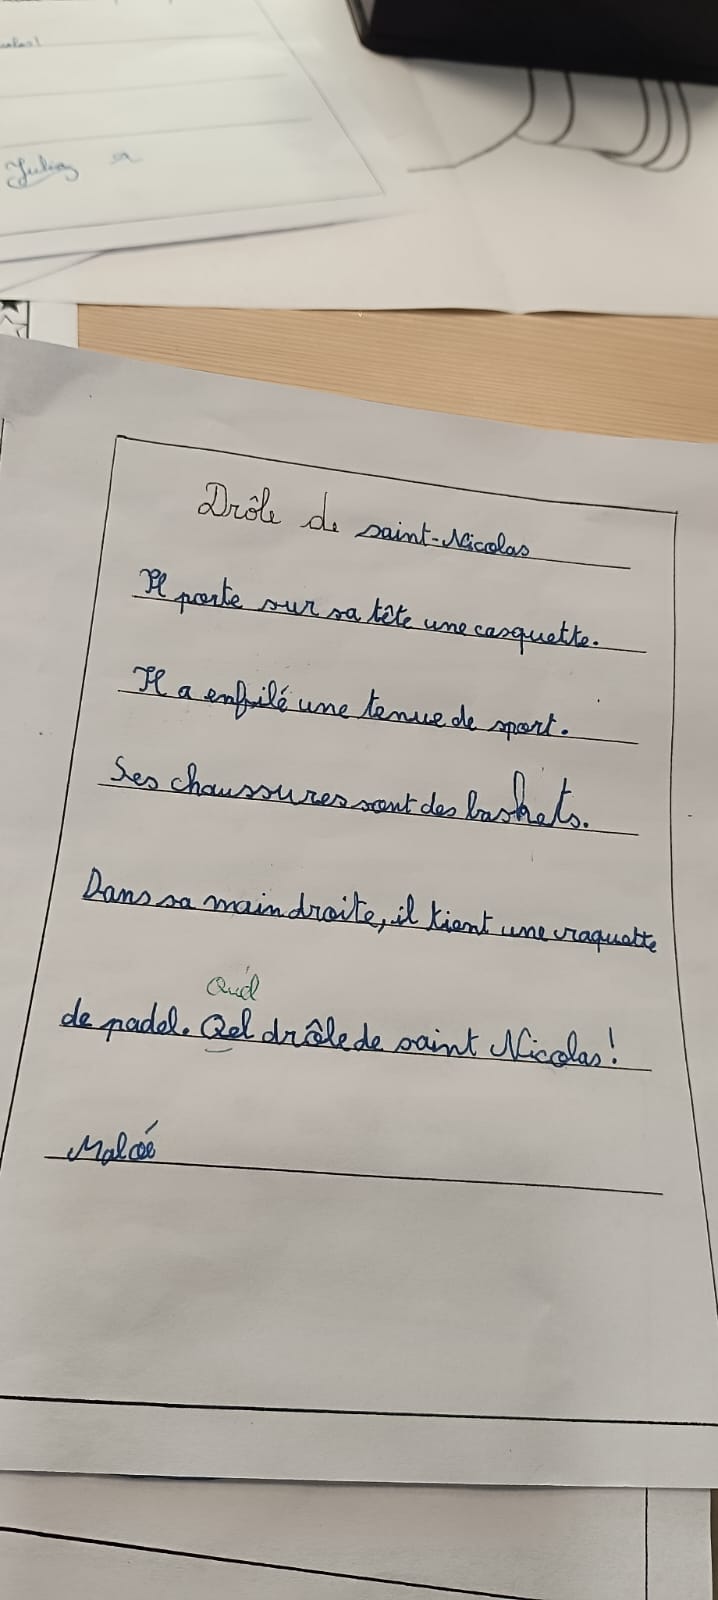 Drôle de saint-Nicolas
Il porte sur sa tête une casquette.
Il a enfilé une tenue de sport.
Ses chaussures sont des baskets.
Dans sa main droite, il tient une raquette
Quel
de padel. Qel drôle de saint Nicolas!